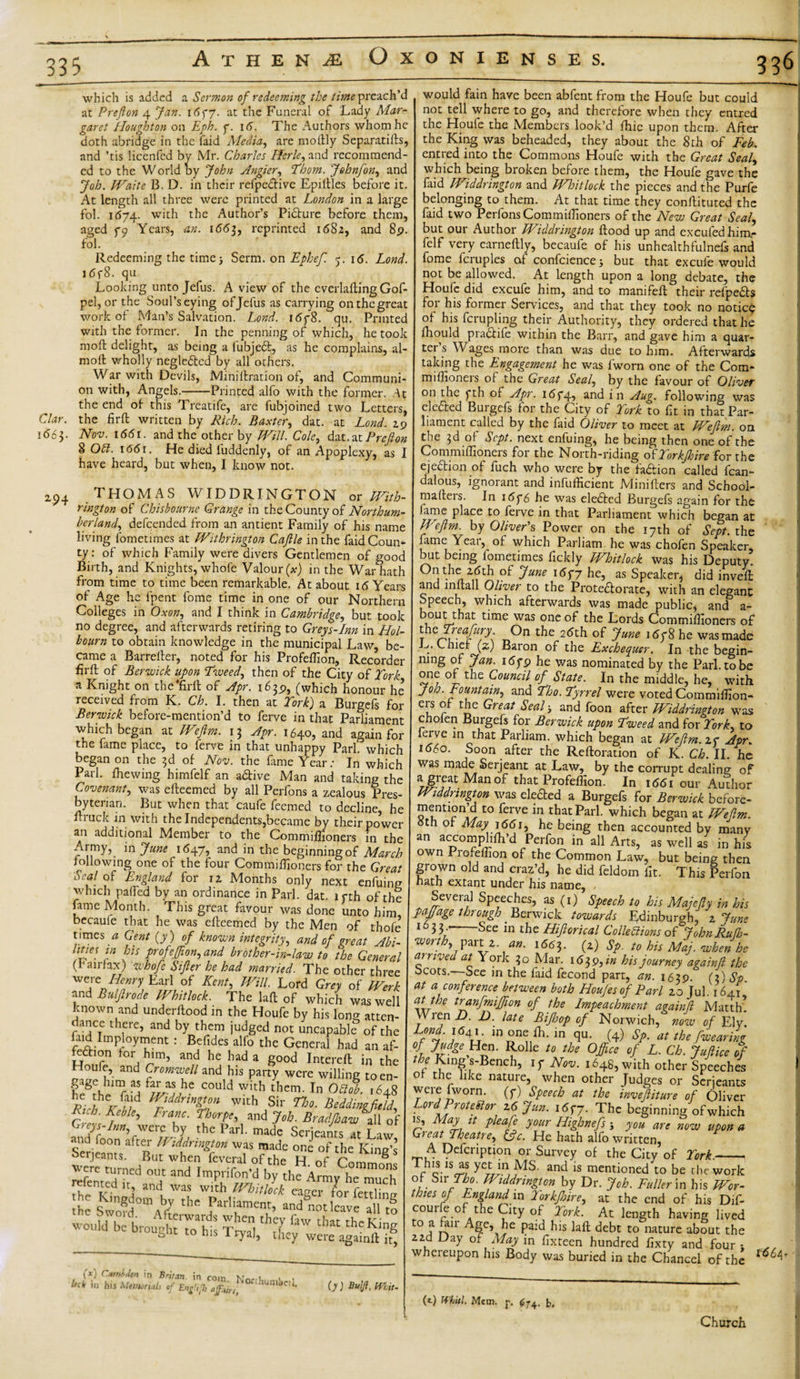 335
ATHENÆ OXONIENSES.
336
which is added a Sermon of redeeming the time preach'd
at Preston 4 Jan. 1657. at the Funeral of Lady Mar-
garet Houghton on Eph. 5. 16. The Authors whom he
doth abridge in the said Media, are mostly Separatists,
and 'tis licensed by Mr. Charles Herle, and recommend-
ed to the World by John Angier, Thom. Johnson, and
Joh. Waite B. D. in their respective Epistles before it.
At length all three were printed at London in a large
fol. 1674. with the Author's Picture before them,
aged 59 Years, an. 1663, reprinted 1682, and 89.
fol.
Redeeming the time; Serm. on Ephes. 5. 16. Lond.
1658. qu
Looking unto Jesus. A view of the everlasting Gos-
pel, or the Soul's eying of Jesus as carrying on the great
work of Man's Salvation. Lond. 1658. qu. Printed
with the former. In the penning of which, he took
most delight, as being a subject, as he complains, al-
most wholly neglected by all others.
War with Devils, Ministration of, and Communi-
on with, Angels.——Printed also with the former. At
the end of this Treatise, are subjoined two Letters,
Clar. the first written by Rich. Baxter, dat. at Lond. 29
1663. Nov. 1661. and the other by Will. Cole, dat. at Preston
8 Oct. 1661. He died suddenly, of an Apoplexy, as I
have heard, but when, I know not.
294 THOMAS WIDDRINGTON or With-
rington of Chisbourne Grange in the County of Northum-
berland, descended from an antient Family of his name
living sometimes at Withrington Castle in the said Coun-
ty: of which Family were divers Gentlemen of good
Birth, and Knights, whose Valour (x) in the War hath
from time to time been remarkable. At about 16 Years
of Age he spent some time in one of our Northern
Colleges in Oxon, and I think in Cambridge, but took
no degree, and afterwards retiring to Greys-Inn in Hol-
bourn to obtain knowledge in the municipal Law, be-
came a Barrester, noted for his Profession, Recorder
first of Berwick upon Tweed, then of the City of York,
a Knight on the first of Apr. 1639, (which honour he
received from K. Ch. I. then at York) a Burgess for
Berwick before-mention'd to serve in that Parliament
which began at Westm. 13 Apr. 1640, and again for
the same place, to serve in that unhappy Parl. which
began on the 3d of Nov. the same Year: In which
Parl. shewing himself an active Man and taking the
Covenant, was esteemed by all Persons a zealous Pres-
byterian. But when that cause seemed to decline, he
struck in with the Independents,became by their power
an additional Member to the Commissioners in the
Army, in June 1647, and in the beginning of March
following one of the four Commissioners for the Great
Seal of England for 12 Months only next ensuing
which passed by an ordinance in Parl. dat. 15th of the
same Month. This great favour was done unto him,
because that he was esteemed by the Men of those
times a Gent (y) of known integrity, and of great Abi-
lities in his profession, and brother-in-law to the General
(Fairfax) whose Sister he had married. The other three
were Henry Earl of Kent, Will. Lord Grey of Werk
and Bulstrode Whitlock. The last of which was well
known and understood in the House by his long atten-
dance there, and by them judged not uncapable of the
said Imployment : Besides also the General had an af-
fection for him, and he had a good Interest in the
House, and Cromwell and his party were willing to en-
gage him as far as he could with them. In Octob. 1648
he the said Widdrington with Sir Tho. Beddingfield,
Rich. Keble, Franc. Thorpe, and Joh. Bradshaw all of
Greys-Inn, were by the Parl. made Serjeants at Law,
and soon after Widdrington was made one of the King's
Serjeants. But when several of the H. of Commons
were turned out and Imprison'd by the Army he much
resented it, and was with Whitlock eager for settling
the Kingdom by the Parliament, and not leave all to
the Sword. Afterwards when they saw that the King
would be brought to his Tryal, they were against it,
(x) Cambden in Britan. in com. Northumberl. (y) Bulst. Whit-
lock in his Memorials of English affairs,
would fain have been absent from the House but could
not tell where to go, and therefore when they entred
the House the Members look'd shie upon them. After
the King was beheaded, they about the 8th of Feb.
entred into the Commons House with the Great Seal,
which being broken before them, the House gave the
said Widdrington and Whitlock the pieces and the Purse
belonging to them. At that time they constituted the
said two Persons Commissioners of the New Great Seal,
but our Author Widdrington stood up and excused him-
self very earnestly, because of his unhealthfulness and
some scruples of conscience; but that excuse would
not be allowed. At length upon a long debate, the
House did excuse him, and to manifest their respects
for his former Services, and that they took no notice
of his scrupling their Authority, they ordered that he
should practise within the Barr, and gave him a quar-
ter's Wages more than was due to him. Afterwards
taking the Engagement he was sworn one of the Com-
missioners of the Great Seal, by the favour of Oliver
on the 5th of Apr. 1654, and in Aug. following was
elected Burgess for the City of York to sit in that Par-
liament called by the said Oliver to meet at Westm. on
the 3d of Sept. next ensuing, he being then one of the
Commissioners for the North-riding of Yorkshire for the
ejection of such who were by the faction called scan-
dalous, ignorant and insufficient Ministers and School-
masters. In 1656 he was elected Burgess again for the
same place to serve in that Parliament which began at
Westm. by Oliver's Power on the 17th of Sept. the
same Year, of which Parliam. he was chosen Speaker,
but being sometimes sickly Whitlock was his Deputy.
On the 26th of June 1657 he, as Speaker, did invest
and install Oliver to the Protectorate, with an elegant
Speech, which afterwards was made public, and a-
bout that time was one of the Lords Commissioners of
the Treasury. On the 26th of June 1658 he was made
L. Chief (z) Baron of the Exchequer. In the begin-
ning of Jan. 1659 he was nominated by the Parl. to be
one of the Council of State. In the middle, he, with
Joh. Fountain, and Tho. Tyrrel were voted Commission-
ers of the Great Seal; and soon after Widdrington was
chosen Burgess for Berwick upon Tweed and for York, to
serve in that Parliam. which began at Westm. 25 Apr.
1660. Soon after the Restoration of K. Ch. II. he
was made Serjeant at Law, by the corrupt dealing of
a great Man of that Profession. In 1661 our Author
Widdrington was elected a Burgess for Berwick before-
mention'd to serve in that Parl. which began at Westm.
8th of May 1661, he being then accounted by many
an accomplish'd Person in all Arts, as well as in his
own Profession of the Common Law, but being then
grown old and craz'd, he did seldom sit. This Person
hath extant under his name,
Several Speeches, as (1) Speech to his Majesty in his
passage through Berwick towards Edinburgh, 2 June
1633.——See in the Historical Collections of John Rush-
worth, part 2. an. 1663. (2) Sp. to his Maj. when he
arrived at York 30 Mar. 1639, in his journey against the
Scots.—See in the said second part, an. 1639. (3) Sp.
at a conference between both Houses of Parl 20 Jul. 1641,
at the transmission of the Impeachment against Matth.
Wren D. D. late Bishop of Norwich, now of Ely.
Lond. 1641. in one sh. in qu. (4) Sp. at the swearing
of Judge Hen. Rolle to the Office of L. Ch. Justice of
the King's-Bench, 15 Nov. 1648, with other Speeches
of the like nature, when other Judges or Serjeants
were sworn. (5) Speech at the investiture of Oliver
Lord Protector 26 Jun. 1657. The beginning of which
is, May it please your Highness; you are now upon a
Great Theatre, &c. He hath also written,
A Description or Survey of the City of York.——
This is as yet in MS. and is mentioned to be the work
of Sir Tho. Widdrington by Dr. Joh. Fuller in his Wor-
thies of England in Yorkshire, at the end of his Dis-
course of the City of York. At length having lived
to a fair Age, he paid his last debt to nature about the
22d Day of May in sixteen hundred sixty and four;
whereupon his Body was buried in the Chancel of the 1664.
(z) Whitl. Mem. p. 674. b.
Church